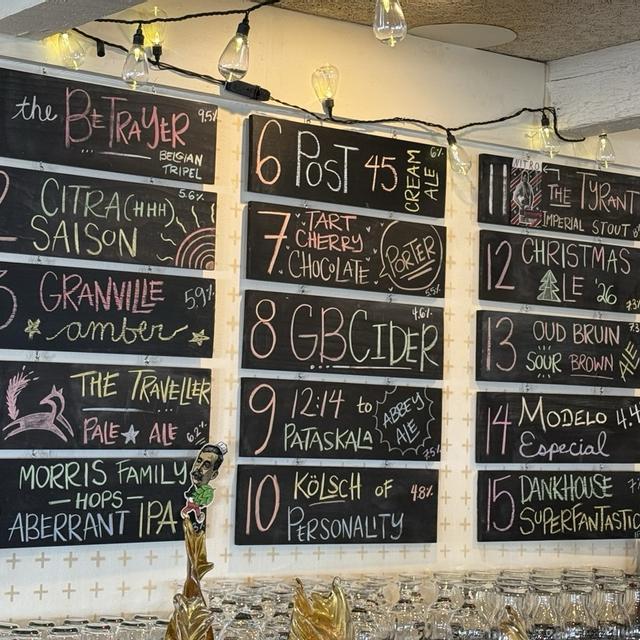 the BETRAYER 9.5%
BELGIAN
TRIPEL
2 CITRA (HHH) 5.6%
SAISON
3 GRANVILLE 5.9%
amber
THE TRAVELLER
PALE ALE 6.2%
MORRIS FAMILY
-HOPS-
ABERRANT IPA
6 POST 45 CREAM ALE 6%
7 TART
CHERRY
CHOCOLATE
PORTER
5.5%
8 GBCIDER 4.6%
9 12:14 to
PATASKALA
ABBEY
ALE
7.5%
10 KÖLSCH OF 4.8%
PERSONALITY
11 NITRO THE TYRANT
IMPERIAL STOUT
12 CHRISTMAS
ALE '26
13 OUD BRUIN
SOUR BROWN ALE
14 MODELO
Especial
15 DANKHOUSE
SUPERFANTASTIC